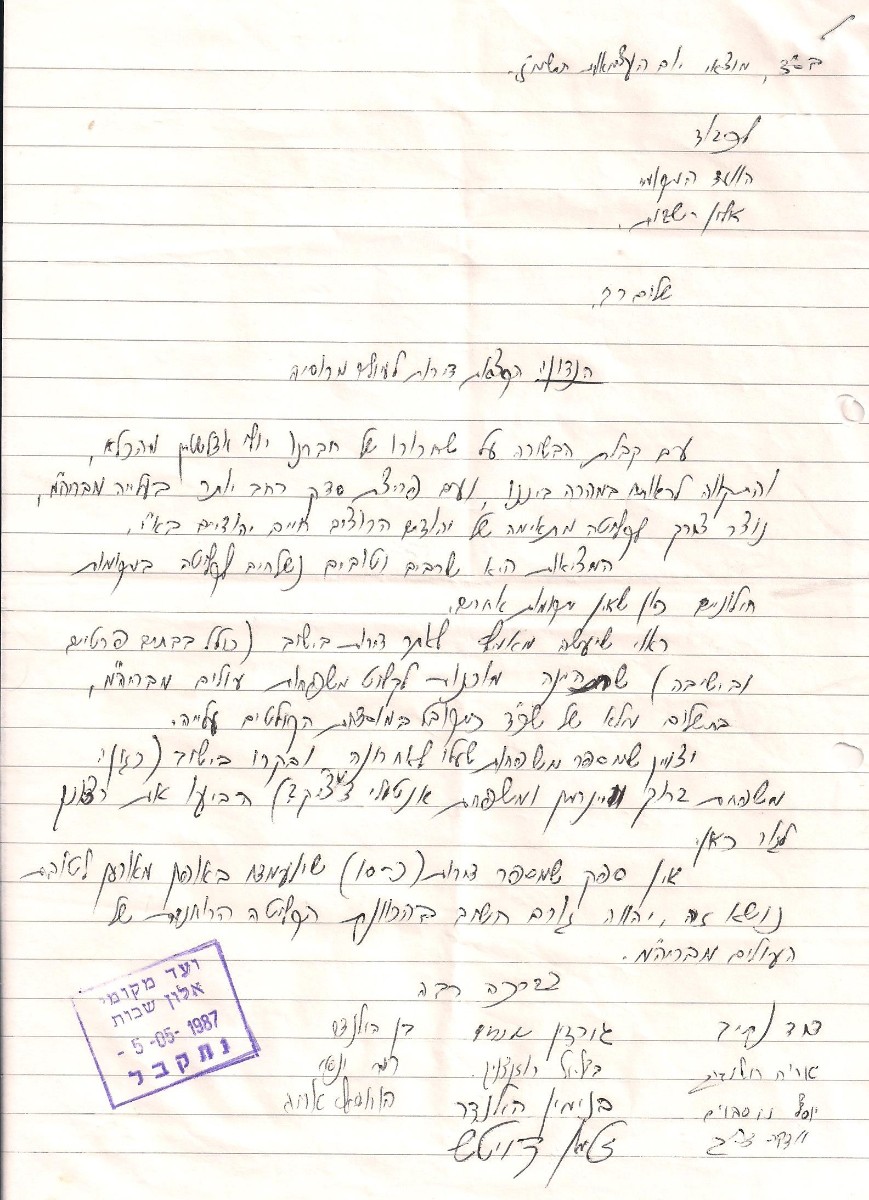 בס"ד, מוצאי יום העצמאות תשמ"ז.
לכבוד
הוועד המקומי
אלון-שבות.
שלום רב,
הנדון: הקצאת דירות לעולי מרוסיה
עם קבלת הבשורה על שחרורו של חברנו יולי אדלשטיין מהכלא,
והתקווה לראותו במהרה ביננו, ועם פריצת סדק רחב יותר בעלייה מבריה"מ,
נוצר צורך לקליטה מתאימה של יהודים הרוצים חיים יהודיים בא"י.
המציאות היא שרבים וטובים נשלחים לקליטה במקומות
חילוניים כיון שאין מקומות אחרים.
ראוי שיעשה מאמץ לאתר דירות בישוב (כולל בבתים פרטיים
ובישיבה) שתהיינה מוכנות לקלוט משפחות עולים מבריה"מ,
בתשלום מלא של שכ"ד כמקובל במוסדות הקולטים עלייה.
יצויין שמספר משפחות שעלו לאחרונה ובקרו בישוב (כגון:
משפחת ברוך ומשפחת אנטולי) הביעו את רצונן
לגור כאן.
אין ספק שמספר דירות (כ-10) שיועמדו באופן מאורגן לטובת
נושא זה, יהווה גורם חשוב בהכוונת הקליטה הרוחנית של
העולים מבריה"מ.
בברכה רבה
דוד נתיב גורדון אנמיס בן הולנדר
אריה בצלאל רוזנצווייג רמי ינאי
יוסף נוסבוים בנימין האלנדר
זלמן דויטש
ועד מקומי
אלון שבות
- 5 -05- 1987
נתקבל